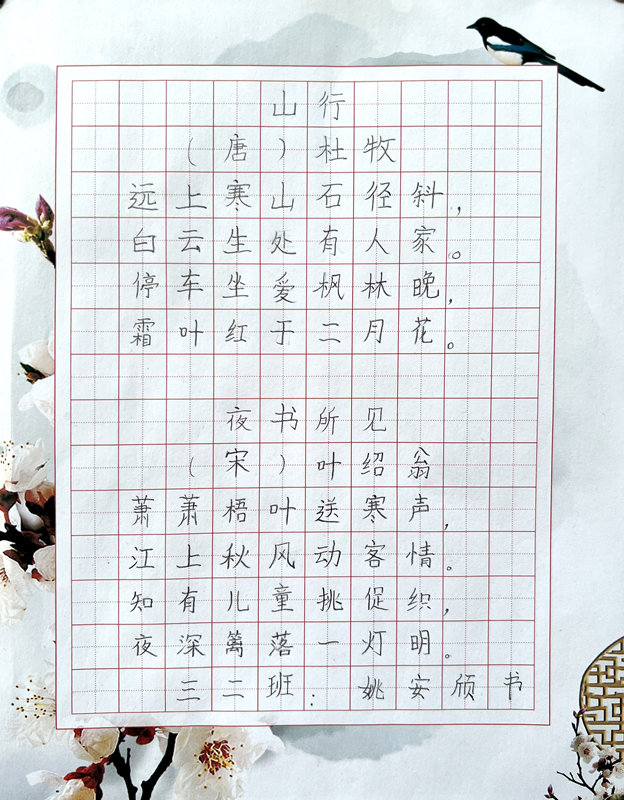 山行
（唐）杜牧
远上寒山石径斜，
白云生处有人家。
停车坐爱枫林晚，
霜叶红于二月花。
夜书所见
（宋）叶绍翁
萧萧梧叶送寒声，
江上秋风动客情。
知有儿童挑促织，
夜深篱落一灯明。
三二班：姚安颀书